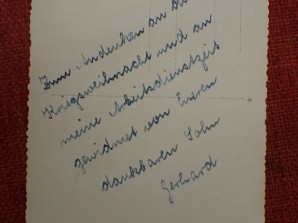 Zum Andenken an die
Kriegsweihnacht und an
meine Arbeitsdienstzeit
gewidmet von Euren
dankbaren Sohn
Gerhard